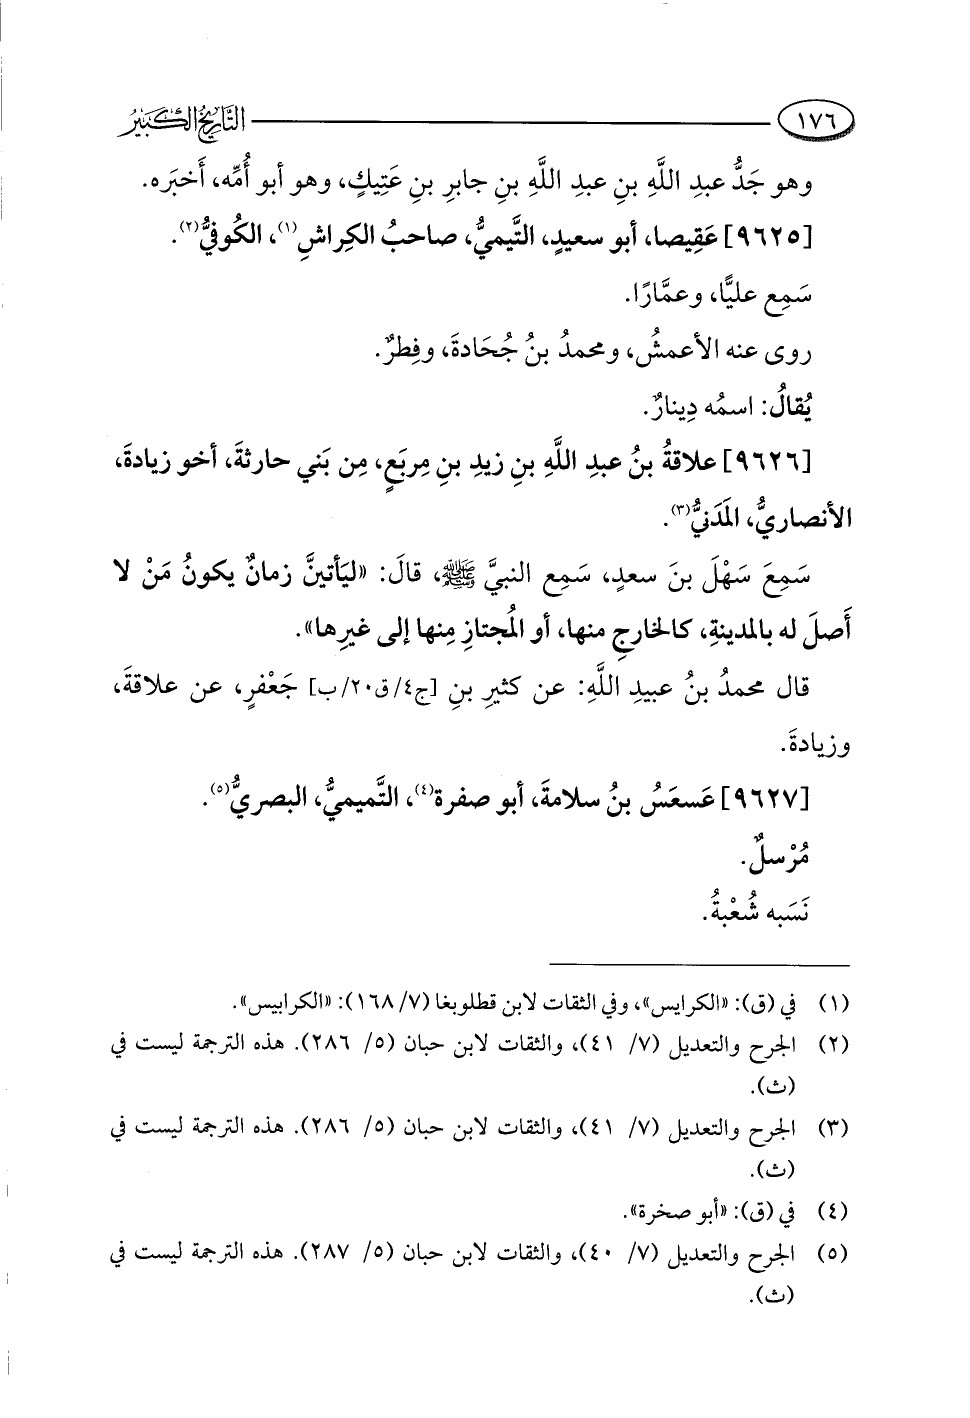 ١٧٦ التاريخ الكبير
وهو جَدُّ عبدِ اللَّهِ بنِ عبدِ اللَّهِ بنِ جابرِ بنِ عَتِيكٍ، وهو أبو أُمِّه، أَخبَره.
[٩٦٢٥] عَقِيصا، أبو سعيدٍ، التَّيميُّ، صاحبُ الكِراشِ(١)، الكُوفيُّ(٢).
سَمِع عليًّا، وعمَّارًا.
روى عنه الأعمشُ، ومحمدُ بنُ جُحَادةَ، وفِطرٌ.
يُقالُ: اسمُه دِينارٌ.
[٩٦٢٦] علاقةُ بنُ عبدِ اللَّهِ بنِ زيدِ بنِ مِربَعٍ، مِن بَني حارثةَ، أخو زيادةَ،
الأنصاريُّ، المَدَنيُّ(٣).
سَمِعَ سَهْلَ بنَ سعدٍ، سَمِع النبيَّ ﷺ، قالَ: «ليَأتينَّ زمانٌ يكونُ مَنْ لا
أَصلَ له بالمدينةِ، كالخارجِ منها، أو المُجتازِ مِنها إلى غيرِها».
قال محمدُ بنُ عبيدِ اللَّهِ: عن كثيرِ بنِ [ج٤/ق٢٠/ب] جَعْفرٍ، عن علاقةَ،
وزيادةَ.
[٩٦٢٧] عَسعَسُ بنُ سلامةَ، أبو صفرة(٤)، التَّميميُّ، البصريُّ(٥).
مُرْسلٌ.
نَسَبه شُعْبةُ.
(١) في (ق): «الكرايس»، وفي الثقات لابن قطلوبغا (٧/ ١٦٨): «الكرابيس».
(٢) الجرح والتعديل (٧/ ٤١)، والثقات لابن حبان (٥/ ٢٨٦). هذه الترجمة ليست في
(ث).
(٣) الجرح والتعديل (٧/ ٤١)، والثقات لابن حبان (٥/ ٢٨٦). هذه الترجمة ليست في
(ث).
(٤) في (ق): «أبو صخرة».
(٥) الجرح والتعديل (٧/ ٤٠)، والثقات لابن حبان (٥/ ٢٨٧). هذه الترجمة ليست في
(ث).